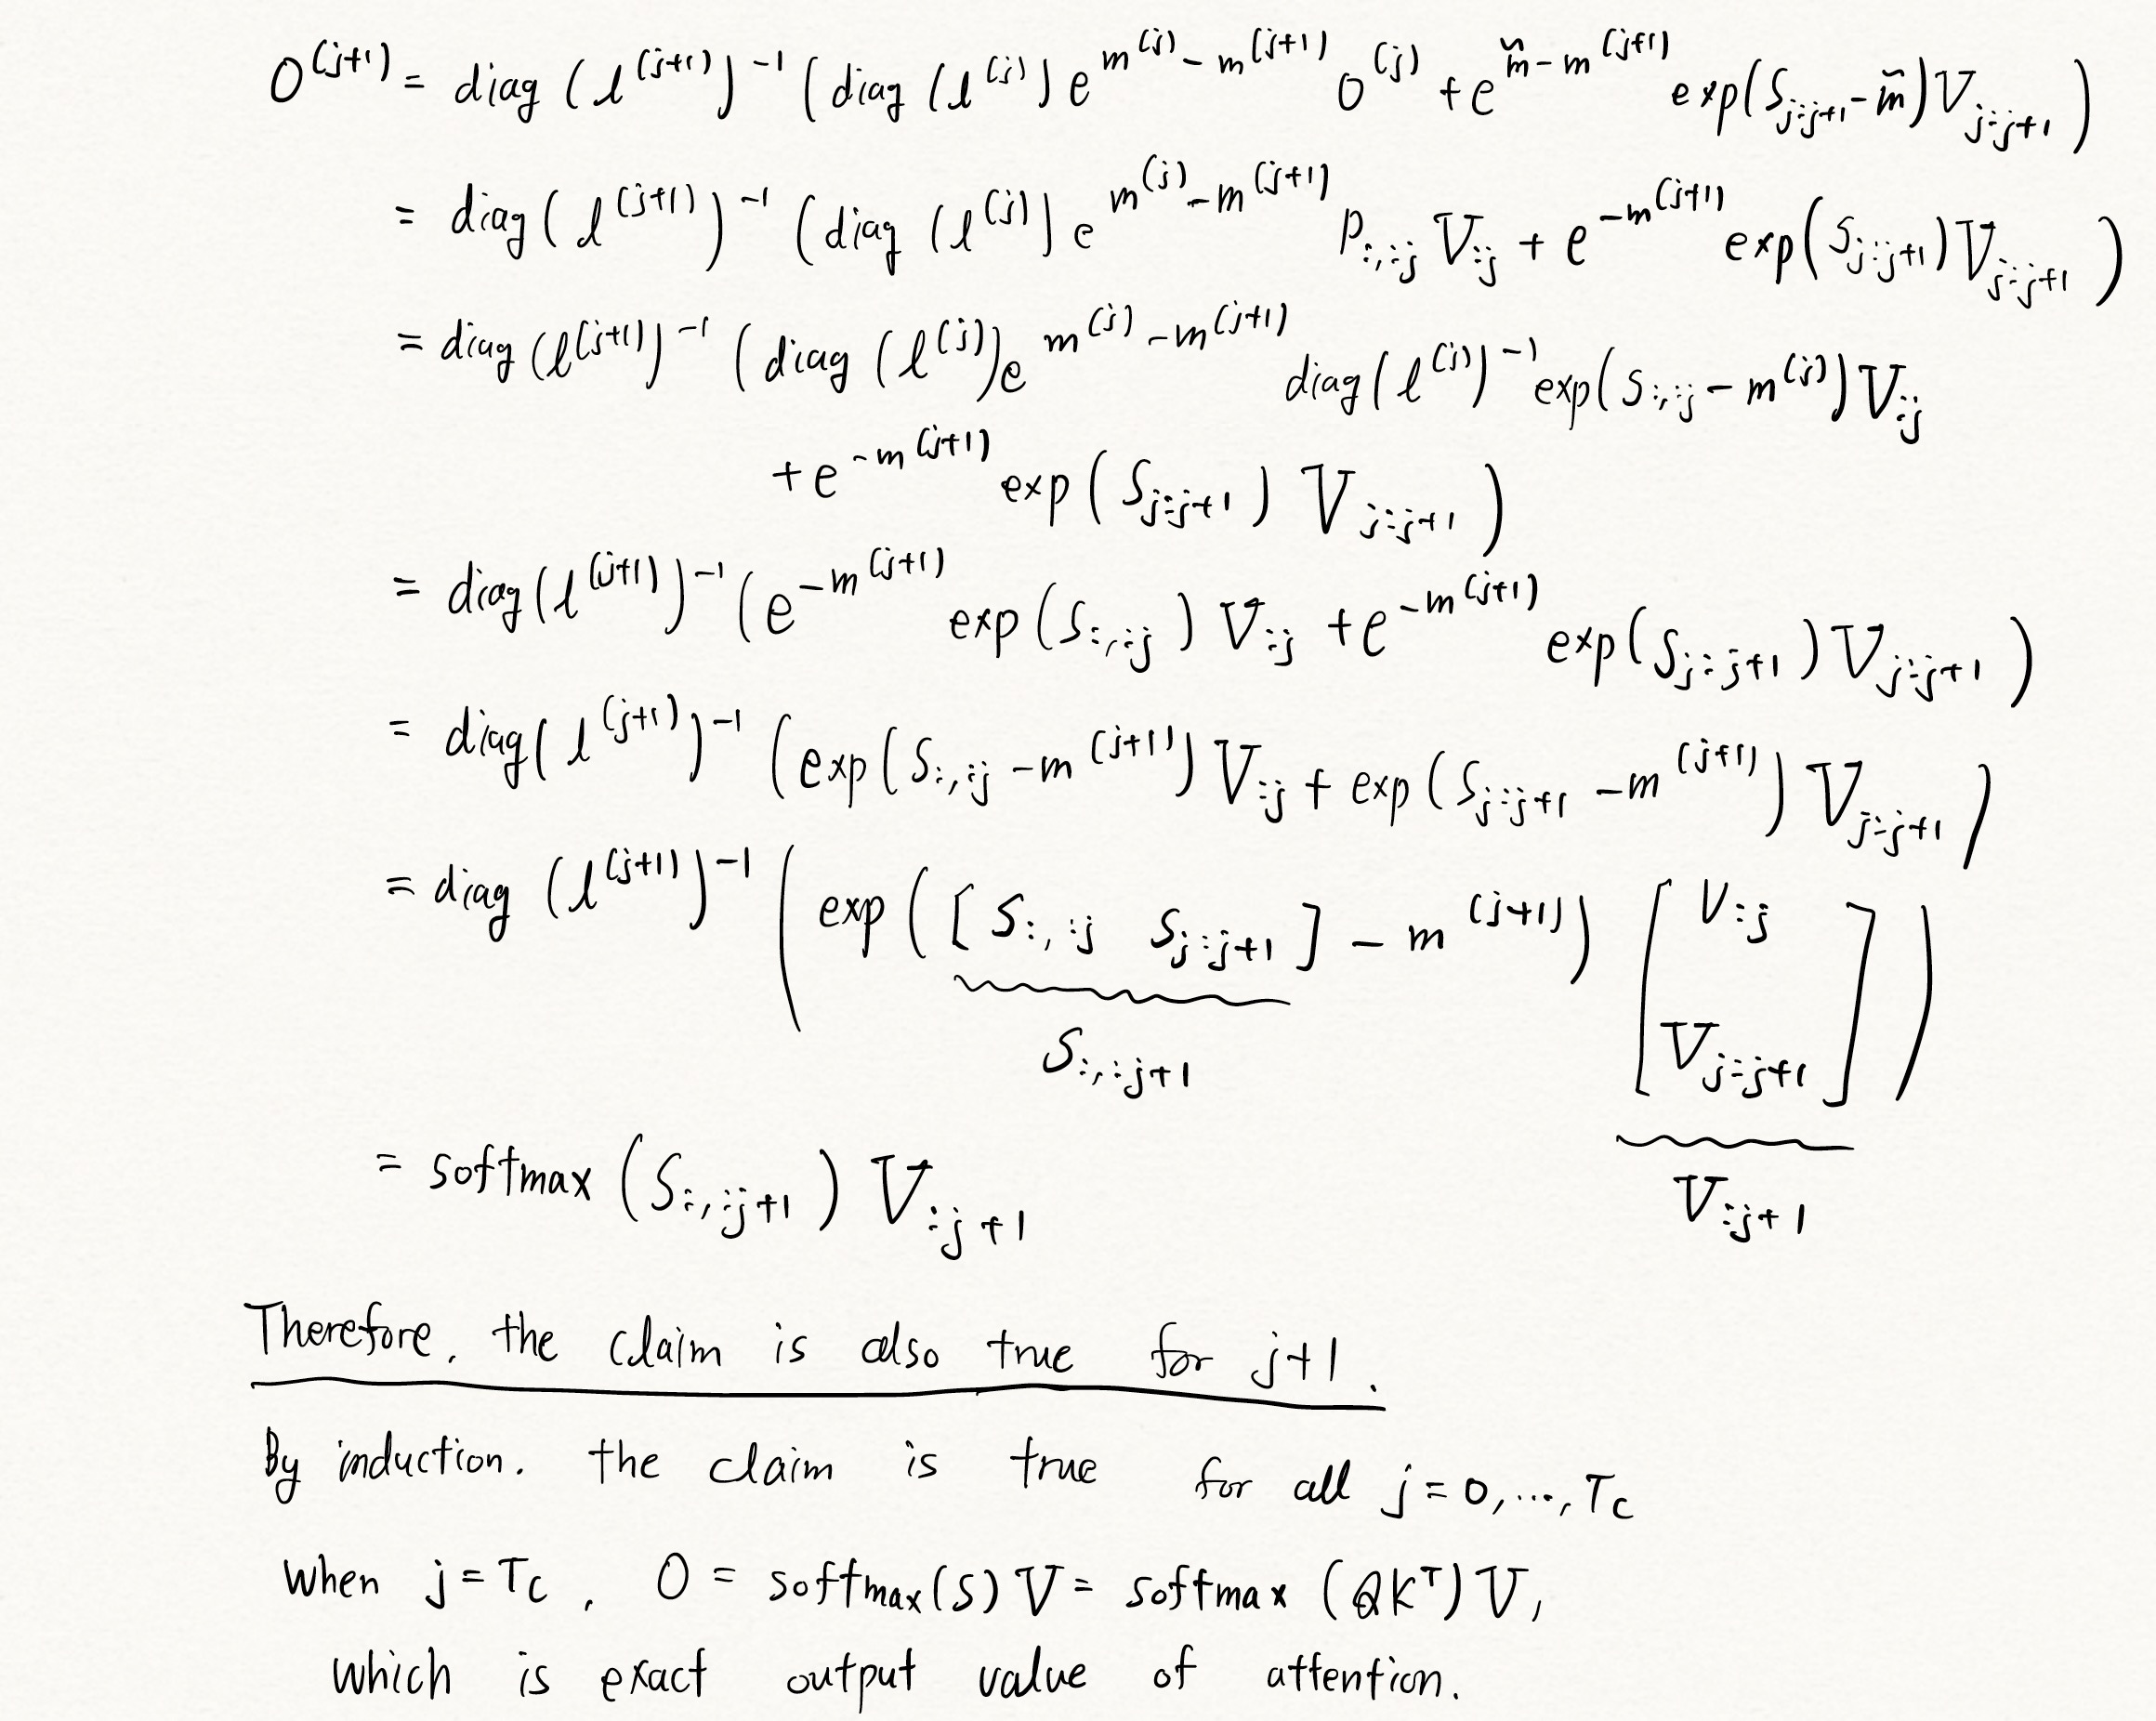 O^{(j+1)} = diag (l^{(j+1)})^{-1} (diag (l^{(j)}) e^{m^{(j)} - m^{(j+1)}} O^{(j)} + e^{m̃ - m^{(j+1)}} exp(S_{j:j+1} - m̃) V_{j:j+1})
= diag (l^{(j+1)})^{-1} (diag (l^{(j)}) e^{m^{(j)} - m^{(j+1)}} P_{:,:j} V_{:j} + e^{-m^{(j+1)}} exp(S_{j:j+1}) V_{j:j+1})
= diag (l^{(j+1)})^{-1} (diag (l^{(j)}) e^{m^{(j)} - m^{(j+1)}} diag(l^{(j)})^{-1} exp(S_{:,:j} - m^{(j)}) V_{:j}
+ e^{-m^{(j+1)}} exp(S_{j:j+1}) V_{j:j+1})
= diag(l^{(j+1)})^{-1} (e^{-m^{(j+1)}} exp(S_{:,:j}) V_{:j} + e^{-m^{(j+1)}} exp(S_{j:j+1}) V_{j:j+1})
= diag(l^{(j+1)})^{-1} (exp(S_{:,:j} - m^{(j+1)}) V_{:j} + exp(S_{j:j+1} - m^{(j+1)}) V_{j:j+1})
= diag (l^{(j+1)})^{-1} (exp([S_{:,:j} S_{j:j+1}] - m^{(j+1)}) [V_{:j} V_{j:j+1}])
S_{:,:j+1}
V_{:j+1}
= softmax (S_{:,:j+1}) V_{:j+1}
Therefore, the claim is also true for j+1.
By induction. the claim is true for all j = 0, ..., T_c
when j = T_c, O = softmax(S) V = softmax (QK^T) V,
which is exact output value of attention.